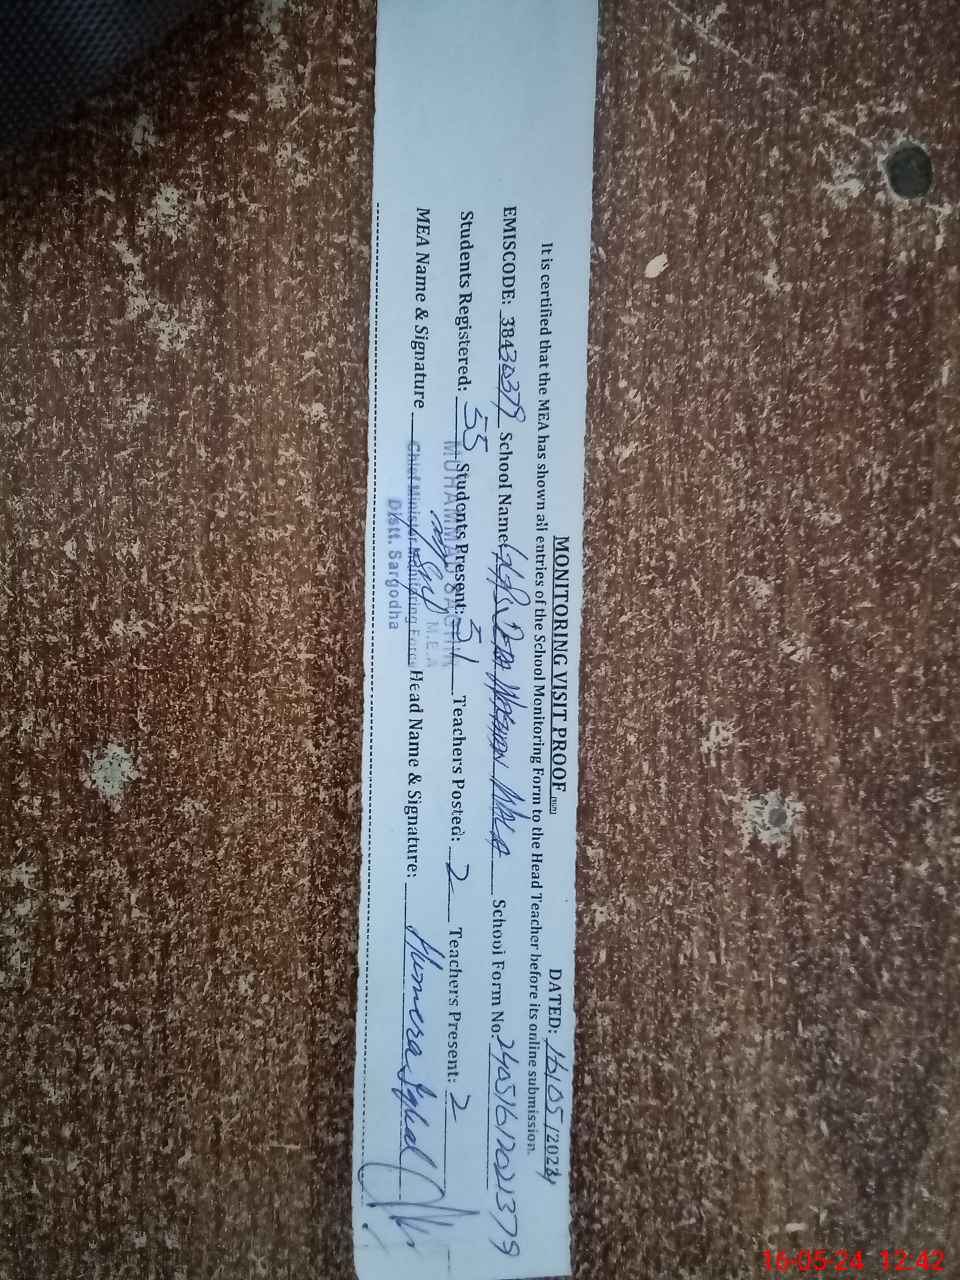 MONITORING VISIT PROOF DATED: 16/05/2024
It is certified that the MEA has shown all entries of the School Monitoring Form to the Head Teacher before its online submission.
EMISCODE: 38430379 School Name School Form No. 24051612021379
Students Registered: 55 Students Present: 51 Teachers Posted: 2 Teachers Present: 2
MUHAMMAD
M.E.A
MEA Name & Signature Head Name & Signature: Humera Iqbal
Chief Minister Monitoring Force
Distt. Sargodha
16-05-24 12:42